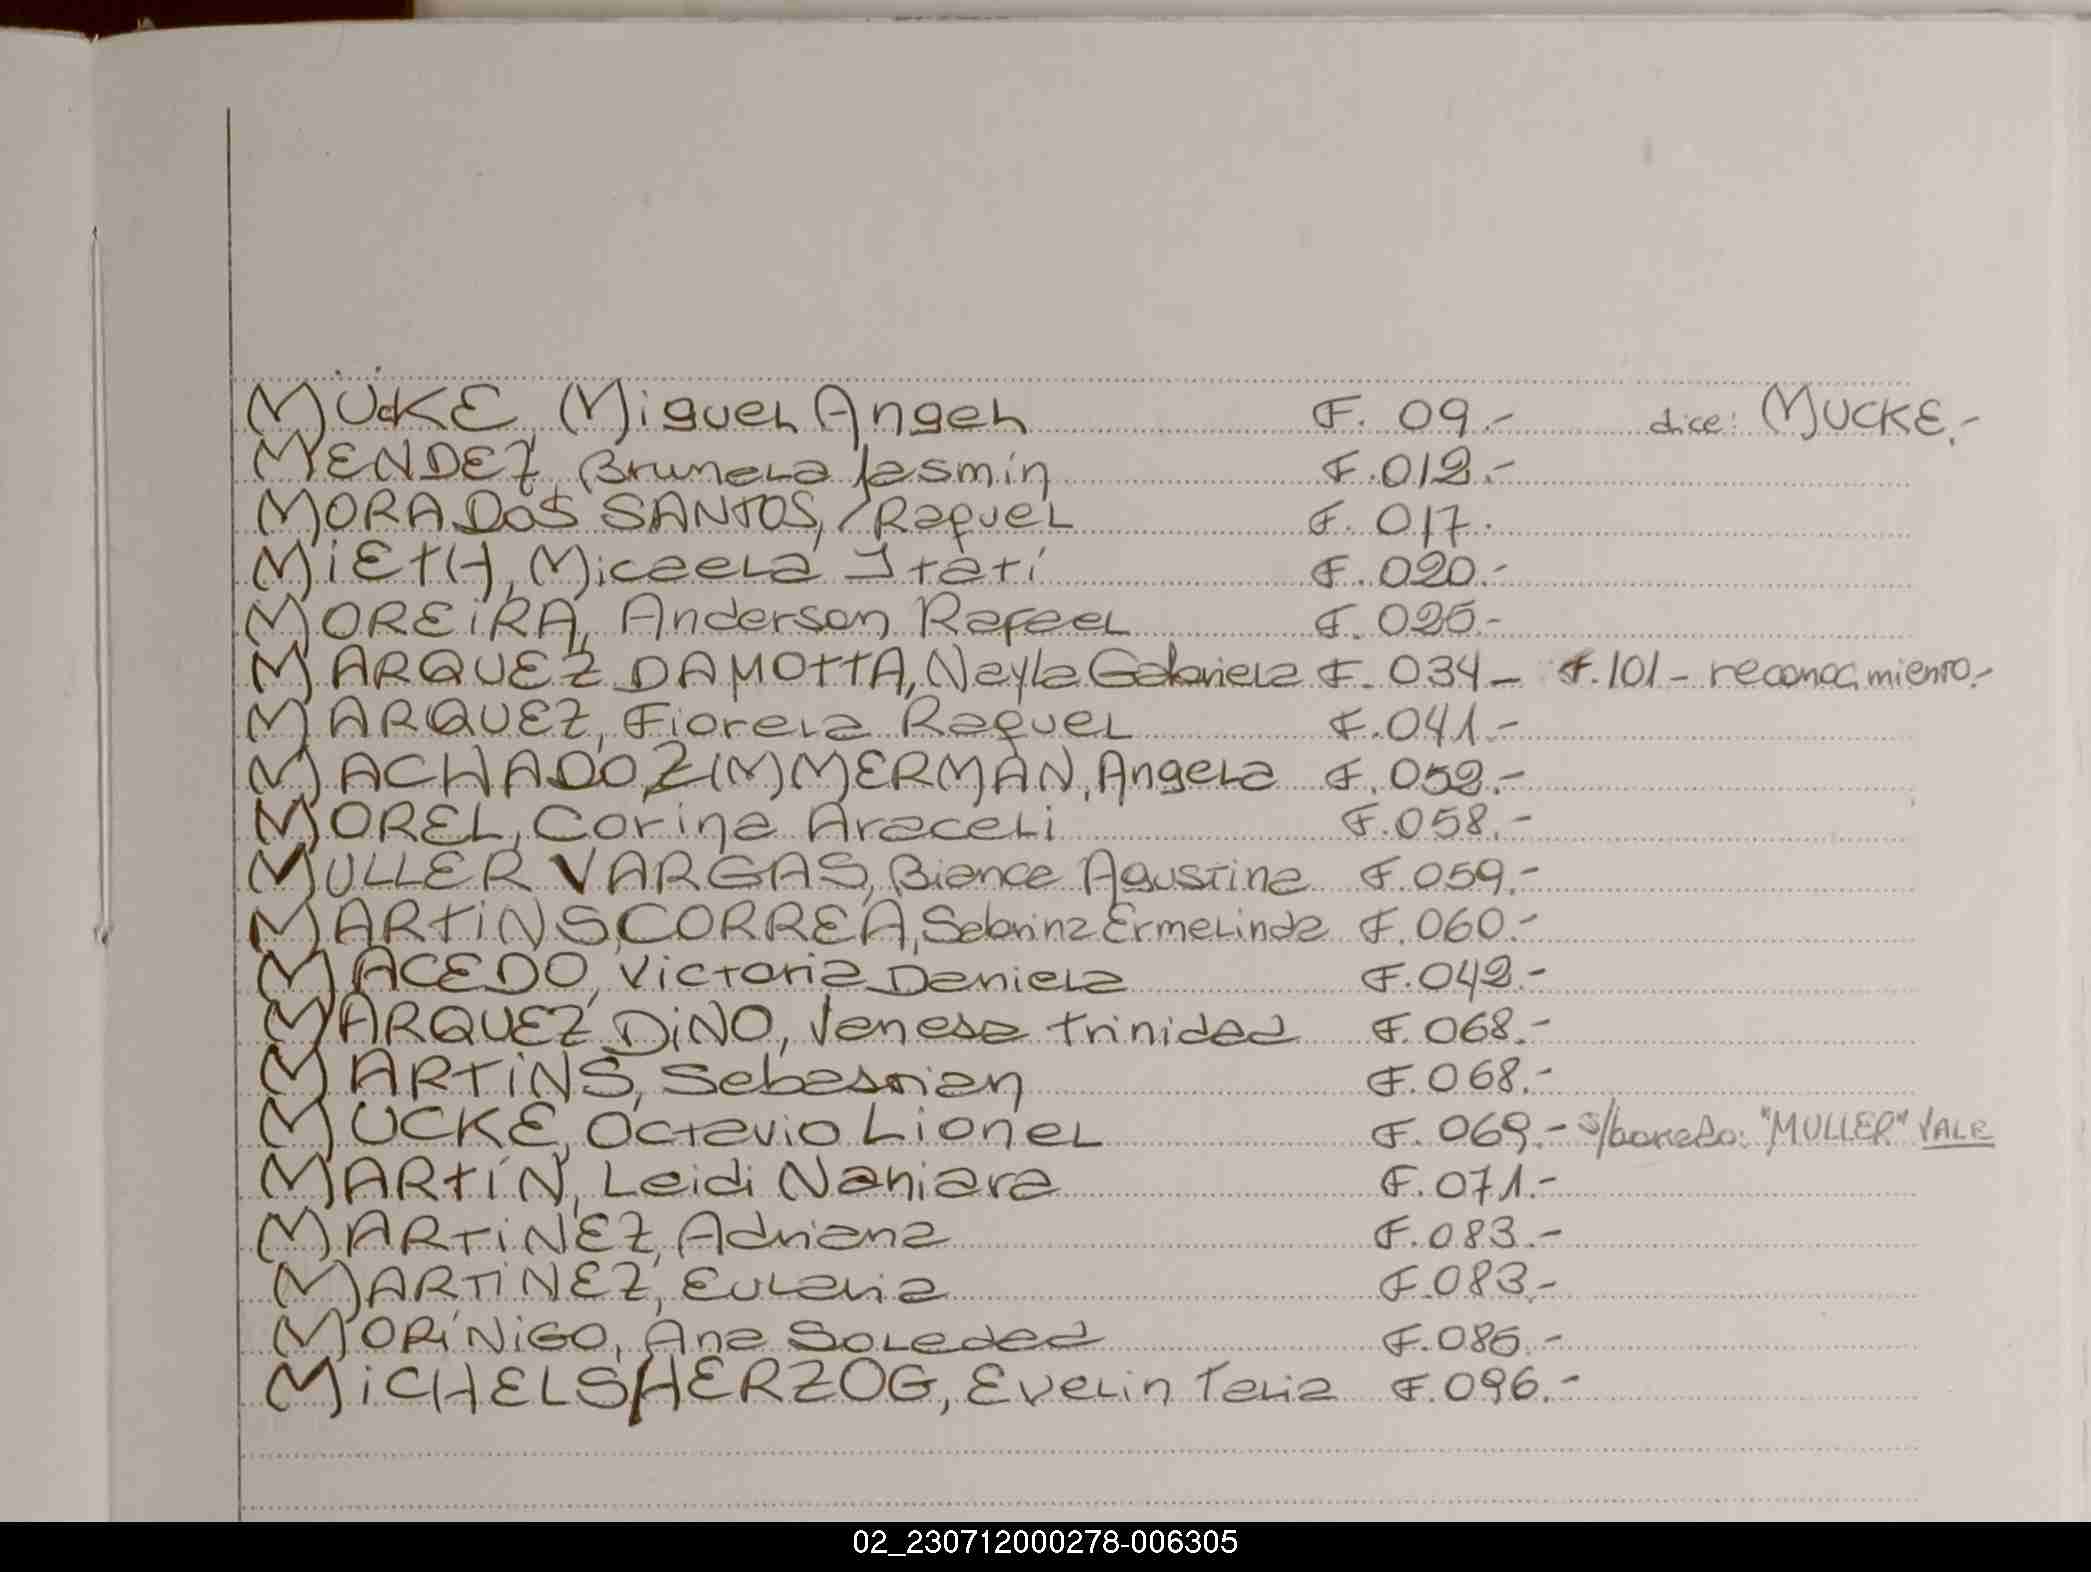 MÜCKE, Miguel Angel F. 09.- dice: MUCKE.-
MENDEZ, Brunela Jasmín F. 012.-
MORA DOS SANTOS, Raquel F. 017.
MiEtH, Micaela Itatí F. 020.-
MOREiRA, Anderson Rafael F. 025.-
MARQUEZ DA MOttA, Nayla Gabriela F. 034- F. 101- reconocimiento.-
MARQUEZ, Fiorela Raquel F. 041.-
MACHADO ZIMMERMAN, Angela F. 052.-
MOREL, Corina Araceli F. 058.-
MULLER VARGAS, Bianca Agustina F. 059.-
MARtiNS CORREA, Sabrina Ermelinda F. 060.-
MACEDO, Victoria Daniela F. 042.-
MARQUEZ DiNO, Vanesa trinidad F. 068.-
MARTiNS, Sebastian F. 068.-
MUCKE, Octavio Lionel F. 069.- s/borrado: "MULLER" VALE
MARtíN, Leidi Naniara F. 071.-
MARTiNEZ, Adriana F. 083.-
MARTiNEZ, Eulalia F. 083.-
MORíNiGO, Ana Soledad F. 085.-
MiCHELS HERZOG, Evelin Talia F. 096.-
02_230712000278-006305